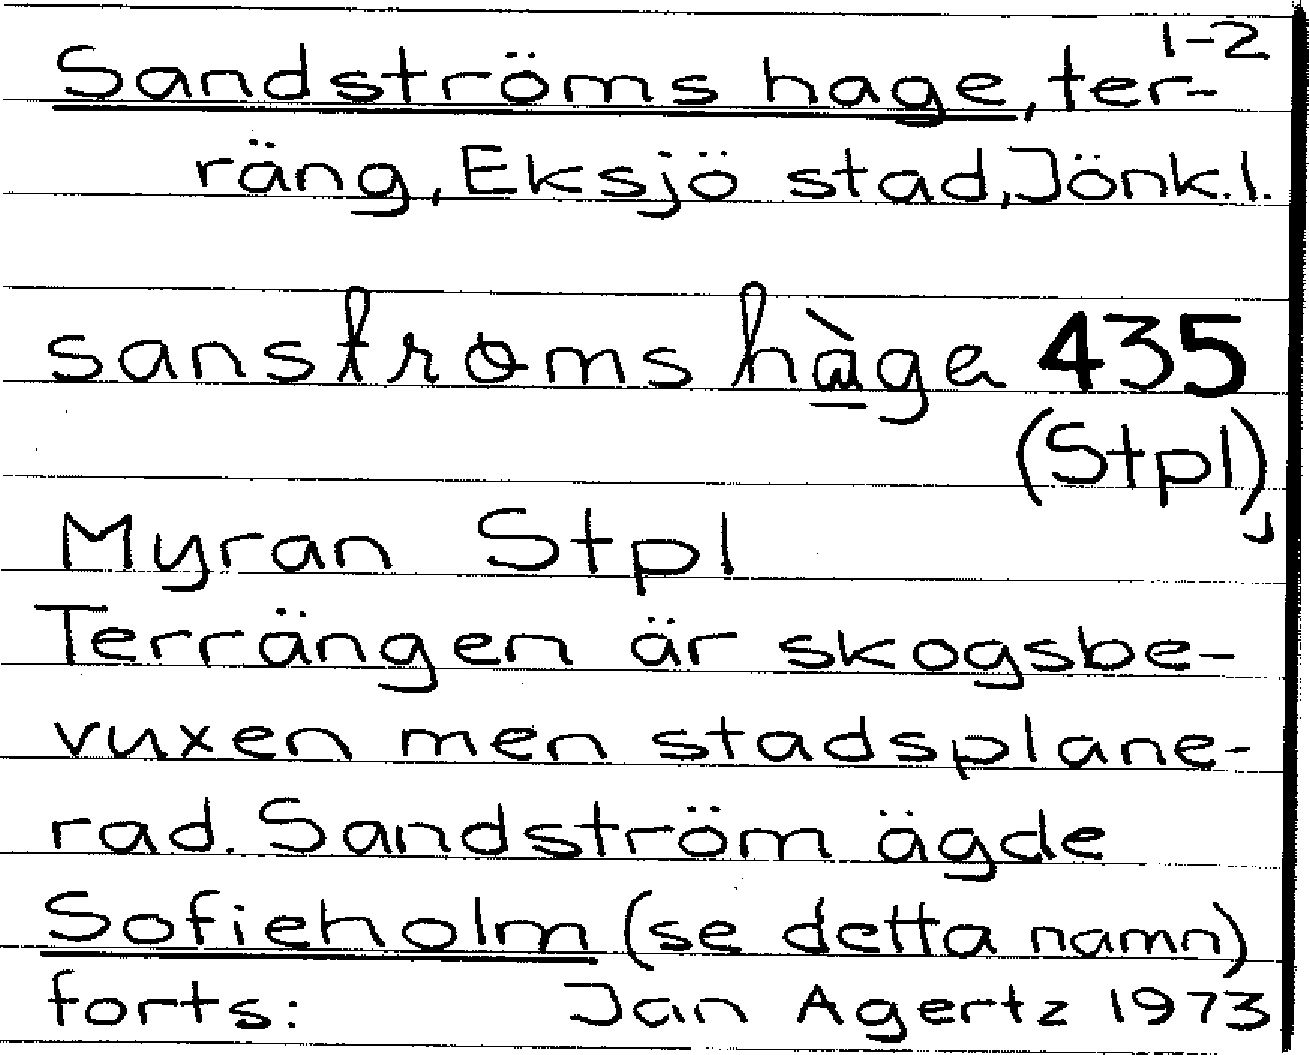 1-2
Sandströms hage, ter-
räng, Eksjö stad, Jönk.l.
sanstroms hàge 435
(Stpl),
Myran Stpl
Terrängen är skogsbe-
vuxen men stadsplane-
rad. Sandström ägde
Sofieholm (se detta namn)
forts: Jan Agertz 1973